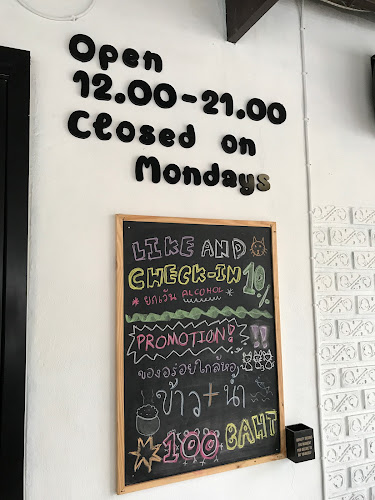 Open
12.00-21.00
Closed on
Mondays
LIKE AND
CHECK-IN 10%
* ยกเว้น ALCOHOL *
PROMOTION! !!
ของอร่อยใกล้หอ
ข้าว + น้ำ
100 BAHT